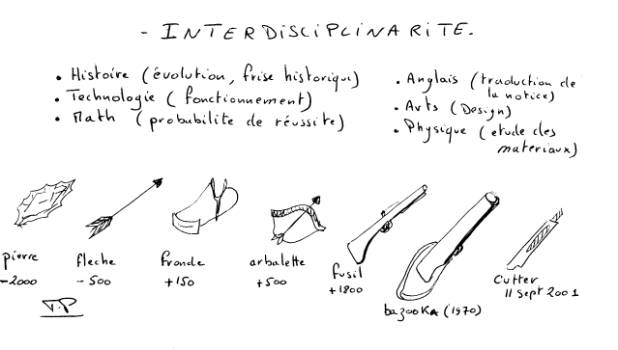 - INTERDISCIPLINARITE.
• Histoire (évolution, frise historique)
• Technologie (fonctionnement)
• Math (probabilite de réussite)
• Anglais (traduction de
la notice)
• Arts (Design)
• Physique (etude des
materiaux)
pierre
-2000
fleche
-500
fronde
+150
arbalette
+500
fusil
+1800
bazooKA (1970)
Cutter
11 Sept 2001
T.P